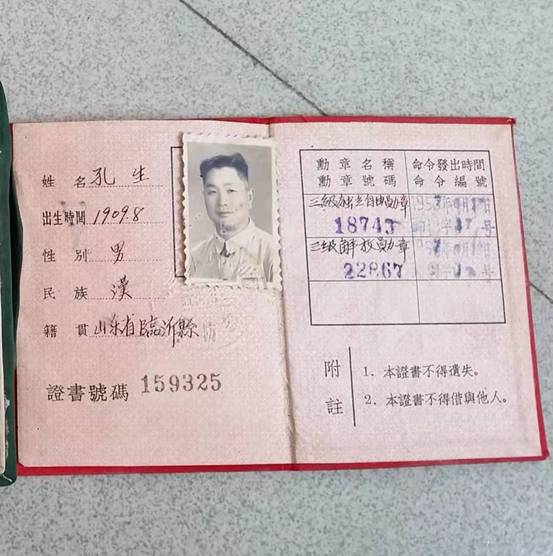 姓 名 孔 生
出生時間 1909.8
性 别 男
民 族 漢
籍 貫 山东省臨沂縣
證書號碼 159325
勳章名稱 命令發出時間
勳章號碼 命令編號
三級独立自由勳章
18743 号
三級解放勳章
22867 号
附註
1. 本證書不得遺失。
2. 本證書不得借與他人。